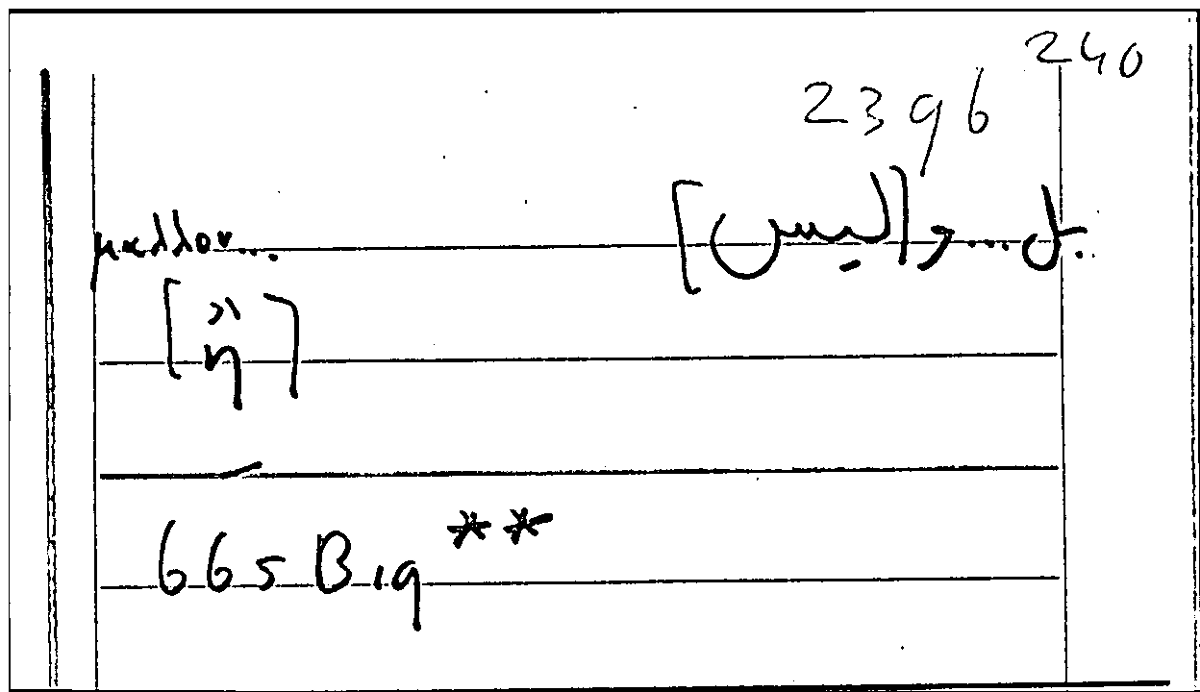 240
2396
μαλλον... بل ... و[اليس]
[ἢ]
665 B 19 **